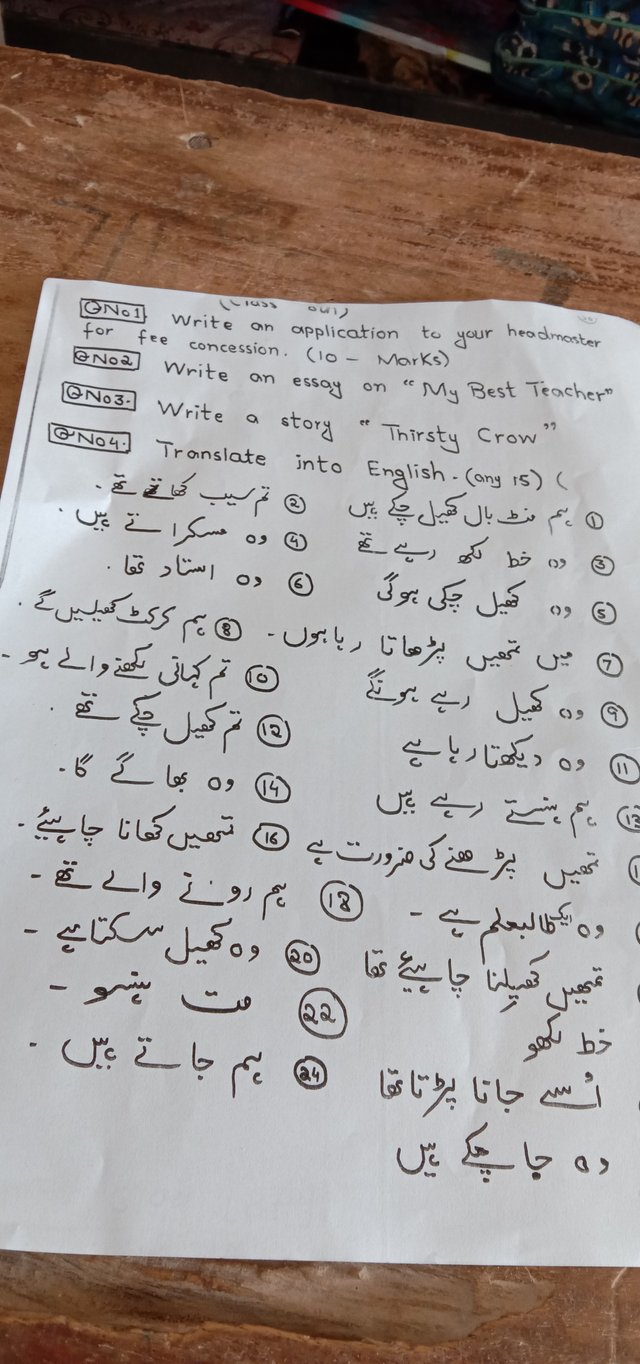 (Class 8th)
QNo1 Write an application to your headmaster
for fee concession. (10 - Marks)
QNo2 Write an essay on "My Best Teacher"
QNo3. Write a story "Thirsty Crow"
QNo4. Translate into English. (any 15) (
① ہم فٹ بال کھیل چکے ہیں ② تم سیب کھاتے تھے ۔
③ وہ خط لکھ رہے تھے ④ وہ مسکراتے ہیں ۔
⑤ وہ کھیل چکی ہوگی ⑥ وہ استاد تھا ۔
⑦ میں تمھیں پڑھاتا رہا ہوں ۔ ⑧ ہم کرکٹ کھیلیں گے ۔
⑨ وہ کھیل رہے ہونگے ⑩ تم کہانی لکھنے والے ہو ۔
⑪ وہ دیکھتا رہا ہے ⑫ تم کھیل چکے تھے ۔
⑬ ہم ہنستے رہے ہیں ⑭ وہ بھاگے گا ۔
تمھیں پڑھنے کی ضرورت ہے ⑯ تمھیں کھانا چاہیئے ۔
وہ ایک طالبعلم ہے ۔ ⑱ ہم رونے والے تھے ۔
تمھیں کھیلنا چاہیئے تھا ⑳ وہ کھیل سکتا ہے ۔
خط لکھو ㉒ مت ہنسو ۔
اُسے جانا پڑتا تھا ㉔ ہم جاتے ہیں ۔
وہ جا چکے ہیں